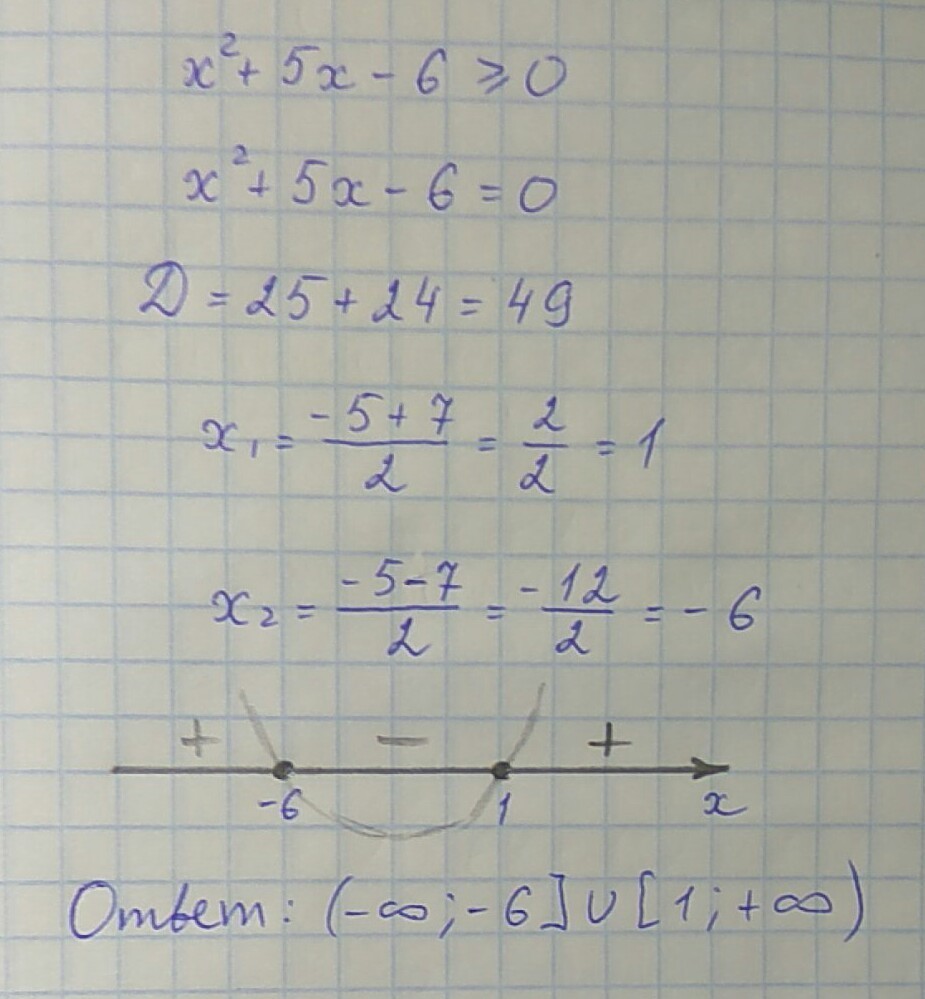 x² + 5x - 6 ⩾ 0
x² + 5x - 6 = 0
D = 25 + 24 = 49
x₁ = (-5+7)/2 = 2/2 = 1
x₂ = (-5-7)/2 = -12/2 = -6
+ − +
-6 1 x
Ответ: (-∞; -6] ∪ [1; +∞)